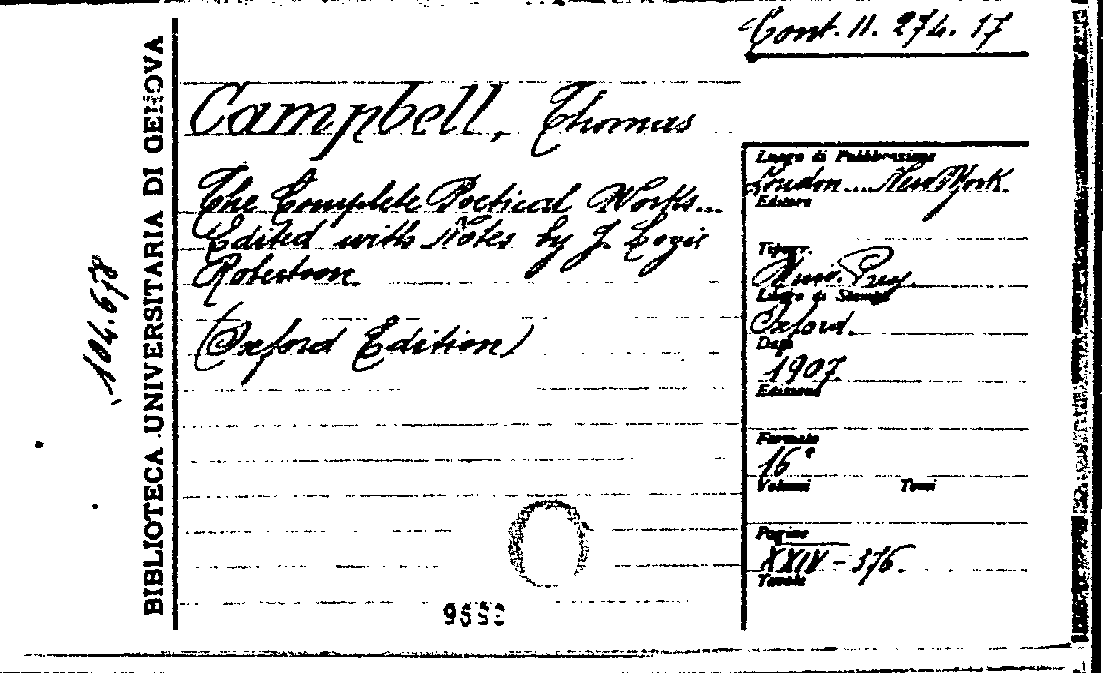 Cont. II. 274. 17
Campbell, Thomas
The Complete Poetical Works...
Edited with Notes by J. Logie
Robertson
(Oxford Edition)
104.678
BIBLIOTECA UNIVERSITARIA DI GENOVA
Luogo di Pubblicazione
London ... New York.
Editore
Tipogr.
Univ. Press.
Luogo di Stampa
Oxford.
Data
1907
Edizione
Formato
16°
Volumi Tomi
Pagine
XXIV - 376.
Tavole